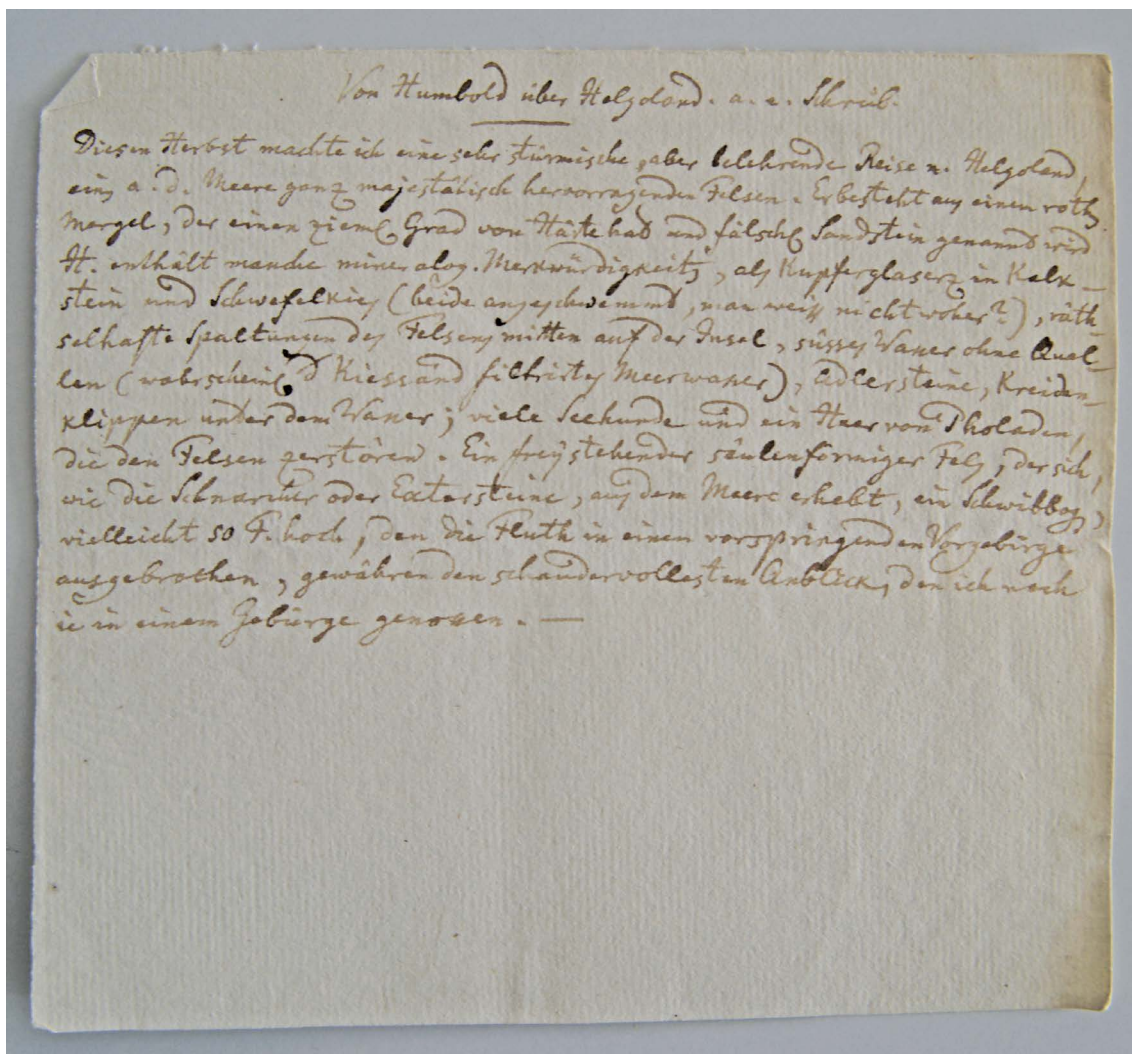 Von Humbold über Helgoland. a. e. Schreib.
Diesen Herbst machte ich eine sehr stürmische, aber belehrende Reise n. Helgoland,
eins a. d. Meere ganz majestätisch hervorragenden Felsen. Er besteht aus einem roth
Mergel, der einen zieml Grad von Härte hat und fälschl Sandstein genannt wird
H. enthält manche mineralog. Merkwürdigkeit, als Kupferglaserz in Kalk-
stein und Schwefelkies (beide angeschwemmt, man weiss nicht woher?), räth-
selhafte Spaltungen des Felsens mitten auf der Insel, süsses Wasser ohne Quel-
len (wahrscheinl d Kiessand filtrirtes Meerwasser), Adlersteine, Kreiden-
klippen unter dem Wasser; viele Seehunde und ein Heer von Pholaden,
die den Felsen zerstören. Ein freÿstehender säulenförmiger Fels, der sich,
wie die Schnarcher oder Extersteine, aus dem Meere erhebt, ein Schwibbog,
vielleicht 50 F. hoch, den die Fluth in einem vorspringenden Vorgebürge
ausgebrochen, gewähren den schaudervollesten Anblick, den ich noch
ie in einem Gebürge genossen. —